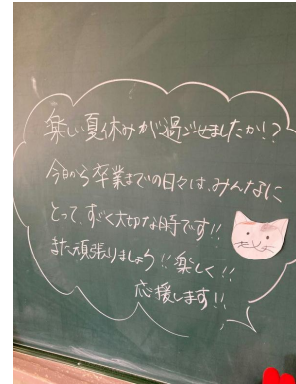 楽しい夏休みが過ごせましたか!?
今日から卒業までの日々は、みんなに
とって、すごく大切な時です!!
また頑張りましょう!!楽しく!!
応援します!!